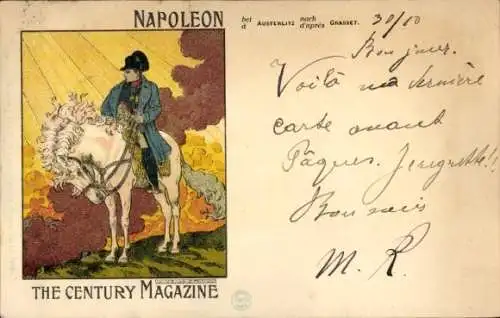 NAPOLEON
bei AUSTERLITZ nach
à d'après GRASSET.
THE CENTURY MAGAZINE
30/10
Bonjour.
Voilà ma dernière
carte avant
Pâques. Je regrette!!
Bon
M. R.